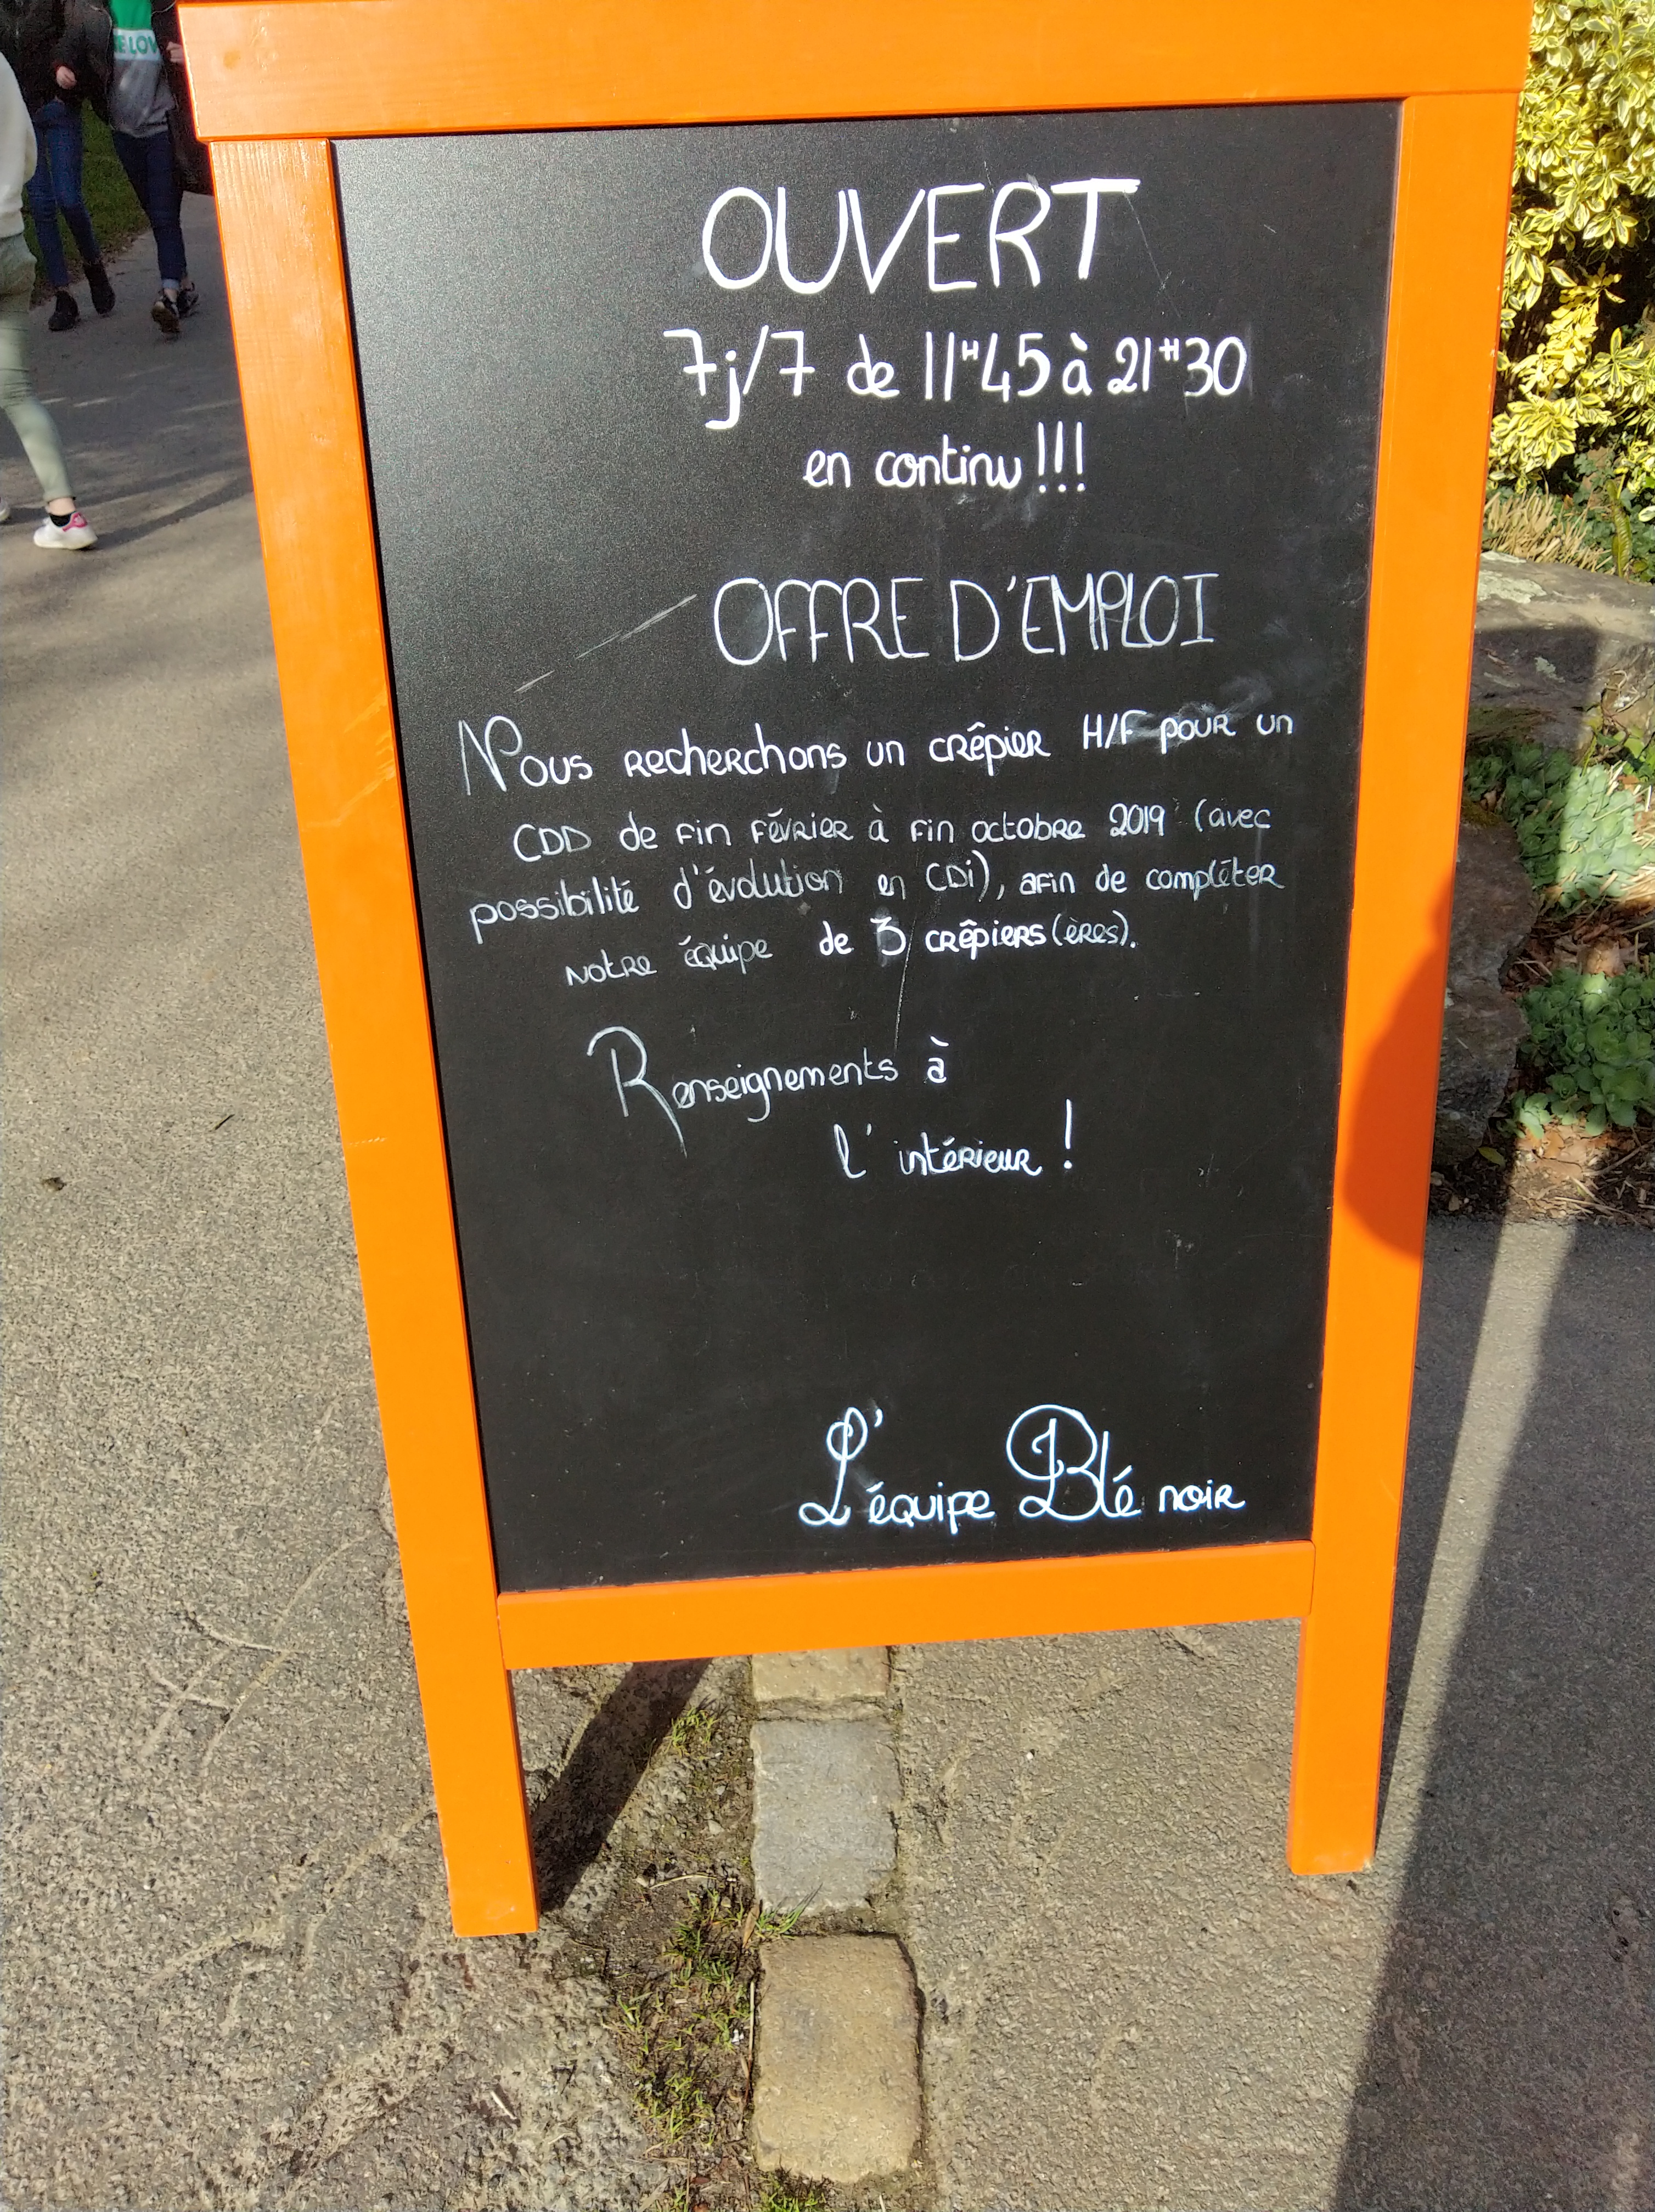 OUVERT
7j/7 de 11H45 à 21H30
en continu !!!
OFFRE D'EMPLOI
Nous recherchons un crêpier H/F pour un
CDD de fin février à fin octobre 2019 (avec
possibilité d'évolution en CDi), afin de compléter
notre équipe de 3 crêpiers(ères).
Renseignements à
l'intérieur !
L'équipe Blé noir
LOV